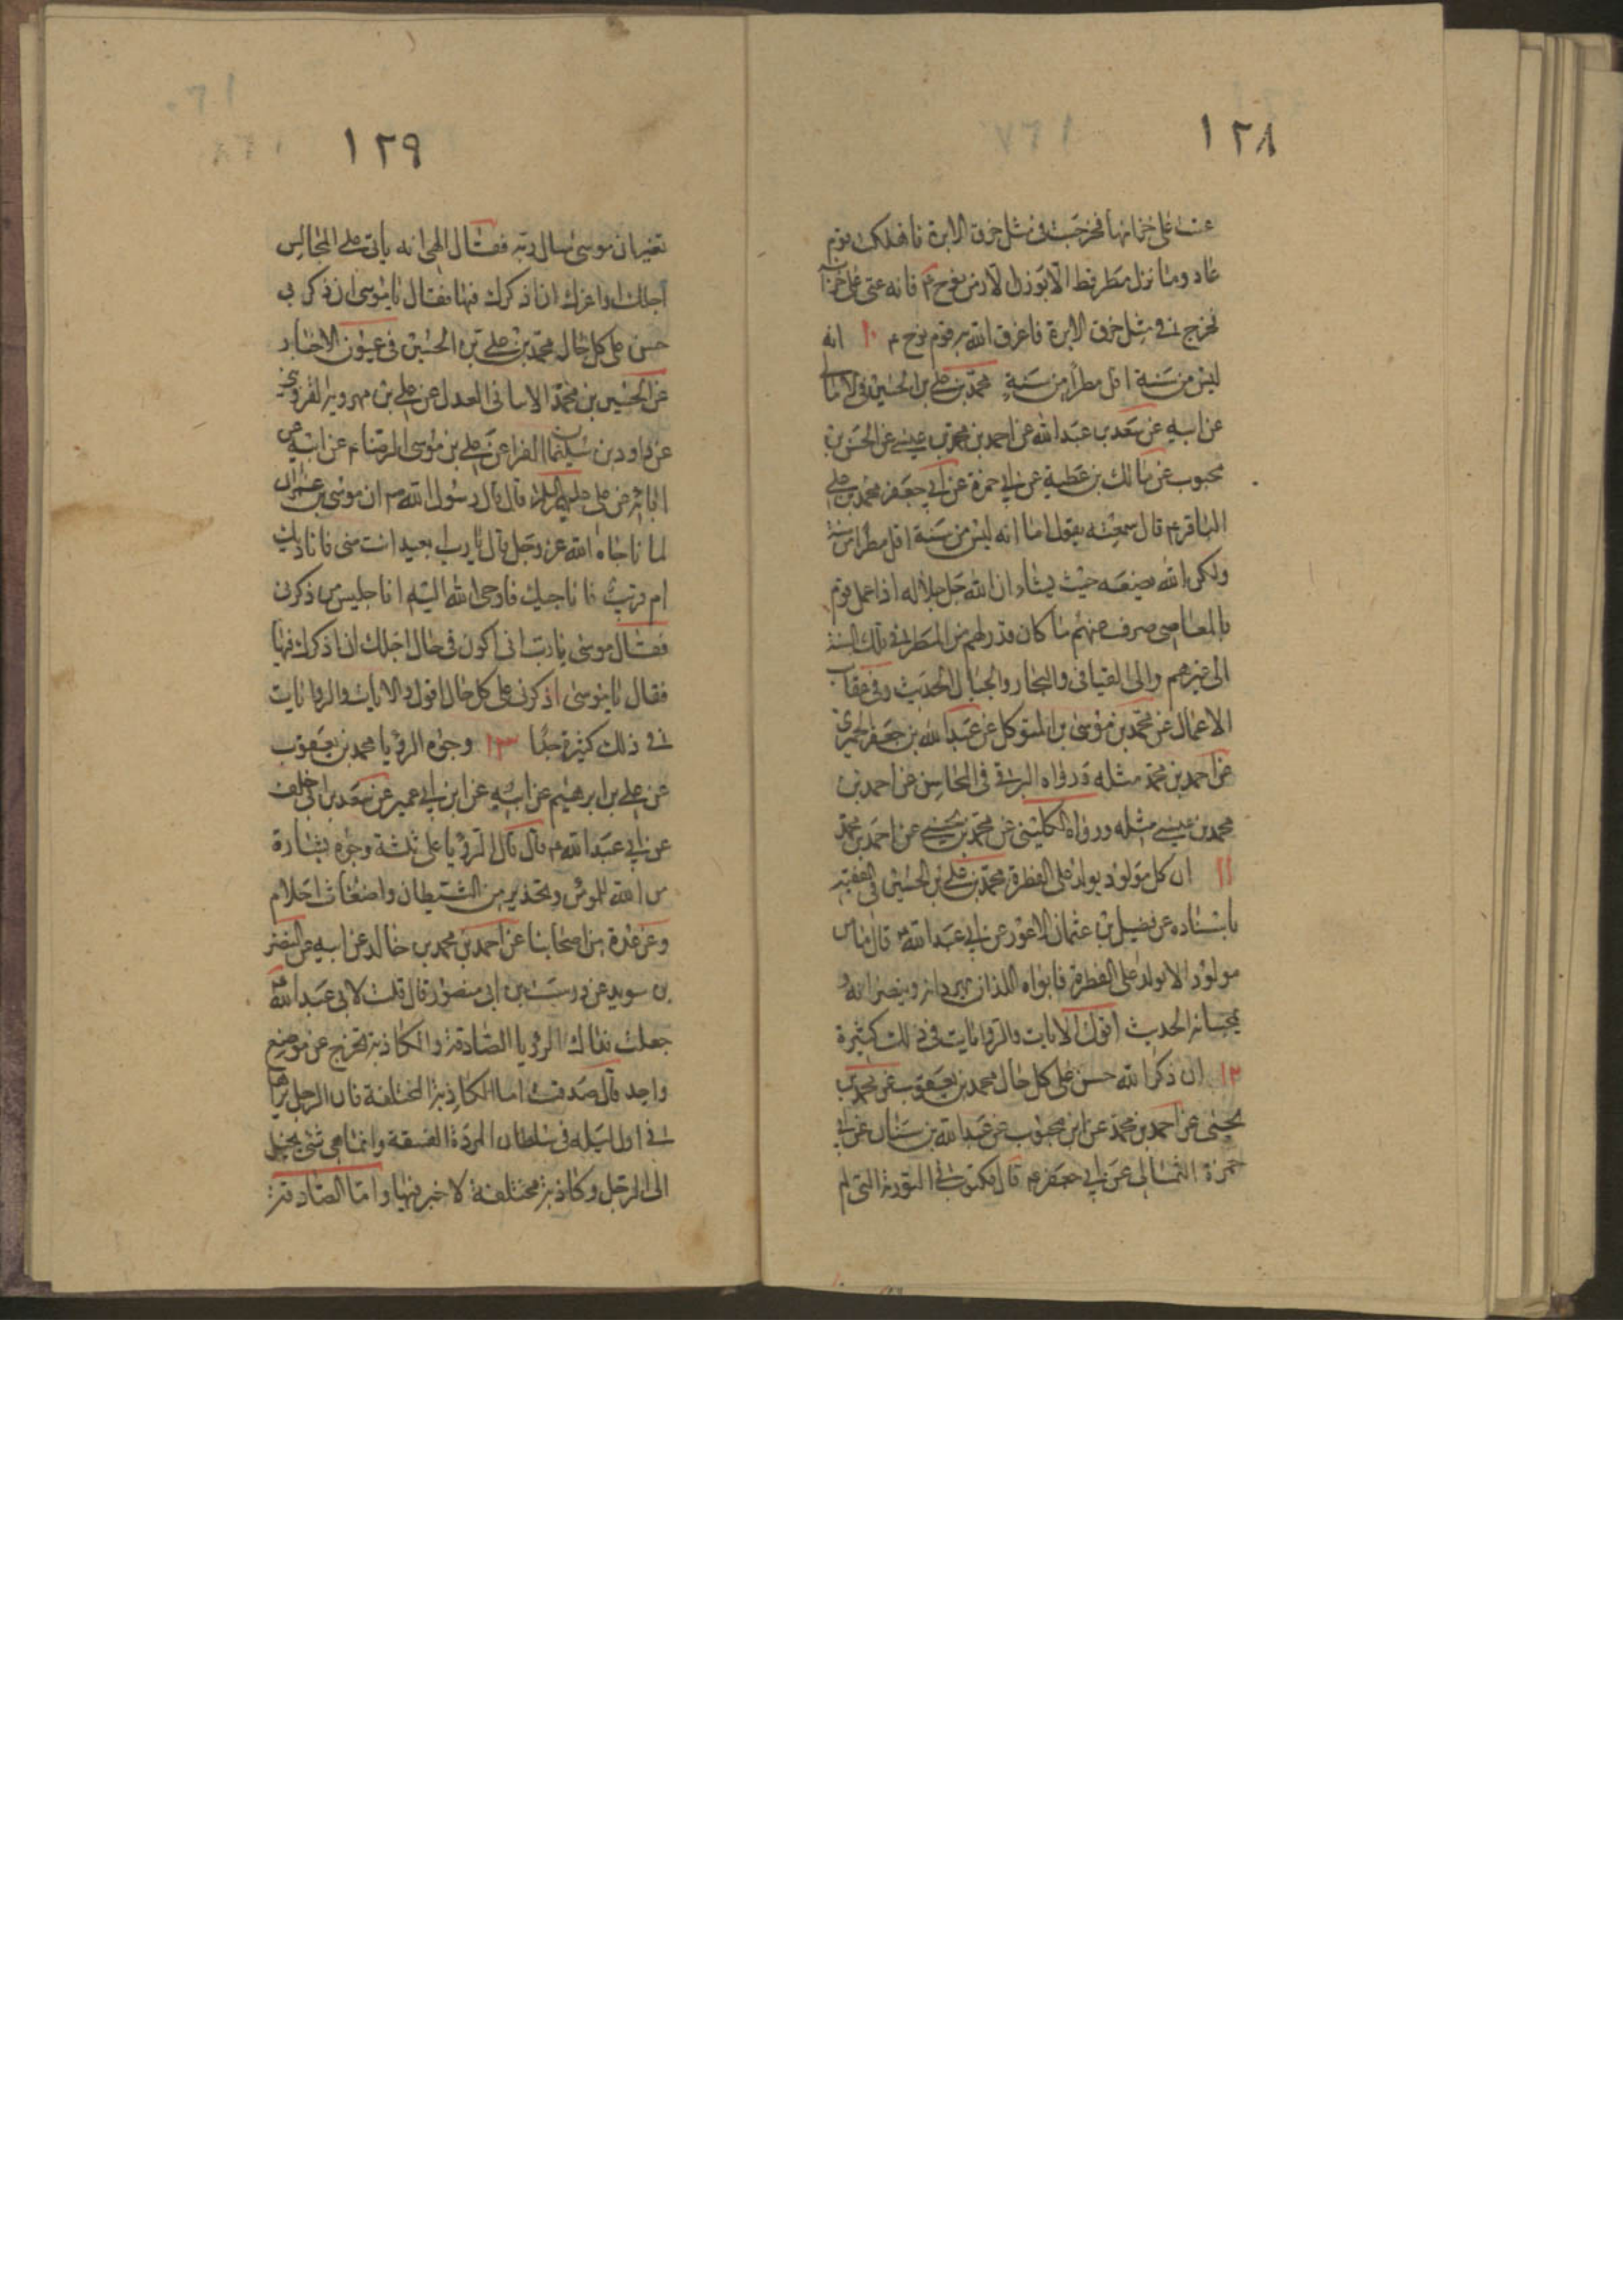 ١٢٨
عتت على خزانها فخرجت فى مثل خرق الابرة فاهلكت قوم
عاد وما نزل مطر قط الا بوزن الا زمن نوح ع فانه عتى على خزانه
فخرج فى مثل خرق الابرة فاغرق الله به قوم نوح ع ١٠ انه
ليس من سنة اقل مطرا من سنة محمد بن على بن الحسين فى الامالى
عن ابيه عن سعد بن عبد الله عن احمد بن محمد بن عيسى عن الحسن بن
محبوب عن مالك بن عطية عن ابي حمزة عن ابي جعفر محمد بن على
الباقر ع قال سمعته يقول اما انه ليس من سنة اقل مطرا من سنة
ولكن الله يضعه حيث يشاء ان الله جل جلاله اذا عمل قوم
بالمعاصى صرف عنهم ما كان قدر لهم من المطر فى تلك السنة
الى غيرهم والى الفيافى والبحار والجبال الحديث وفى عقاب
الاعمال عن محمد بن موسى بن المتوكل عن عبد الله بن جعفر الحميرى
عن احمد بن محمد مثله ورواه البرقى فى المحاسن عن احمد بن
محمد بن عيسى مثله ورواه الكلينى عن محمد بن يحيى عن احمد بن محمد
١١ ان كل مولود يولد على الفطرة محمد بن على بن الحسين فى الفقيه
باسناده عن فضيل بن عثمان الاعور عن ابي عبد الله ع قال ما من
مولود الا يولد على الفطرة فابواه اللذان يهودانه وينصرانه و
يمجسانه الحديث اقول الايات والروايات فى ذلك كثيرة
١٢ ان ذكر الله حسن على كل حال محمد بن يعقوب عن محمد بن
يحيى عن احمد بن محمد عن ابن محبوب عن عبد الله بن سنان عن ابي
حمزة الثمالى عن ابي جعفر ع قال مكتوب فى التورية التى لم
١٢٩
تغير ان موسى سال ربه فقال الهى انه ياتى على المجالس
اجلك واعزك ان اذكرك فيها فقال يا موسى ان ذكرى
حسن على كل حال محمد بن على بن الحسين فى عيون الاخبار
عن الحسين بن محمد الاشنانى العدل عن على بن مهرويه القزوينى
عن داود بن سليمان الفرا عن على بن موسى الرضا ع عن ابيه عن
ابائه عن على عليهم السلام قال قال رسول الله ص ان موسى بن عمران
لما ناجاه الله عز وجل قال يا رب ابعيد انت منى فاناديك
ام قريب فاناجيك فاوحى الله اليه انا جليس من ذكرنى
فقال موسى يا رب انى اكون فى حال اجلك ان اذكرك فيها
فقال يا موسى اذكرنى على كل حال اقول والايات والروايات
فى ذلك كثيرة جدا ١٣ وجوه الرؤيا محمد بن يعقوب
عن على بن ابرهيم عن ابيه عن ابن ابي عمير عن سعد بن ابى خلف
عن ابي عبد الله ع قال قال الرؤيا على ثلثة وجوه بشارة
من الله للمؤمن وتحذير من الشيطان واضغاث احلام
وعن عدة من اصحابنا عن احمد بن محمد بن خالد عن ابيه عن النضر
بن سويد عن درست بن ابى منصور قال قلت لابى عبد الله ع
جعلت فداك الرؤيا الصادقة والكاذبة تخرج عن موضع
واحد قال صدقت اما الكاذبة المختلفة فان الرجل يراها
فى اول ليله فى سلطان المردة الفسقة وانما هى شئ يخيل
الى الرجل وكاذبة مختلفة لا خير فيها واما الصادقة